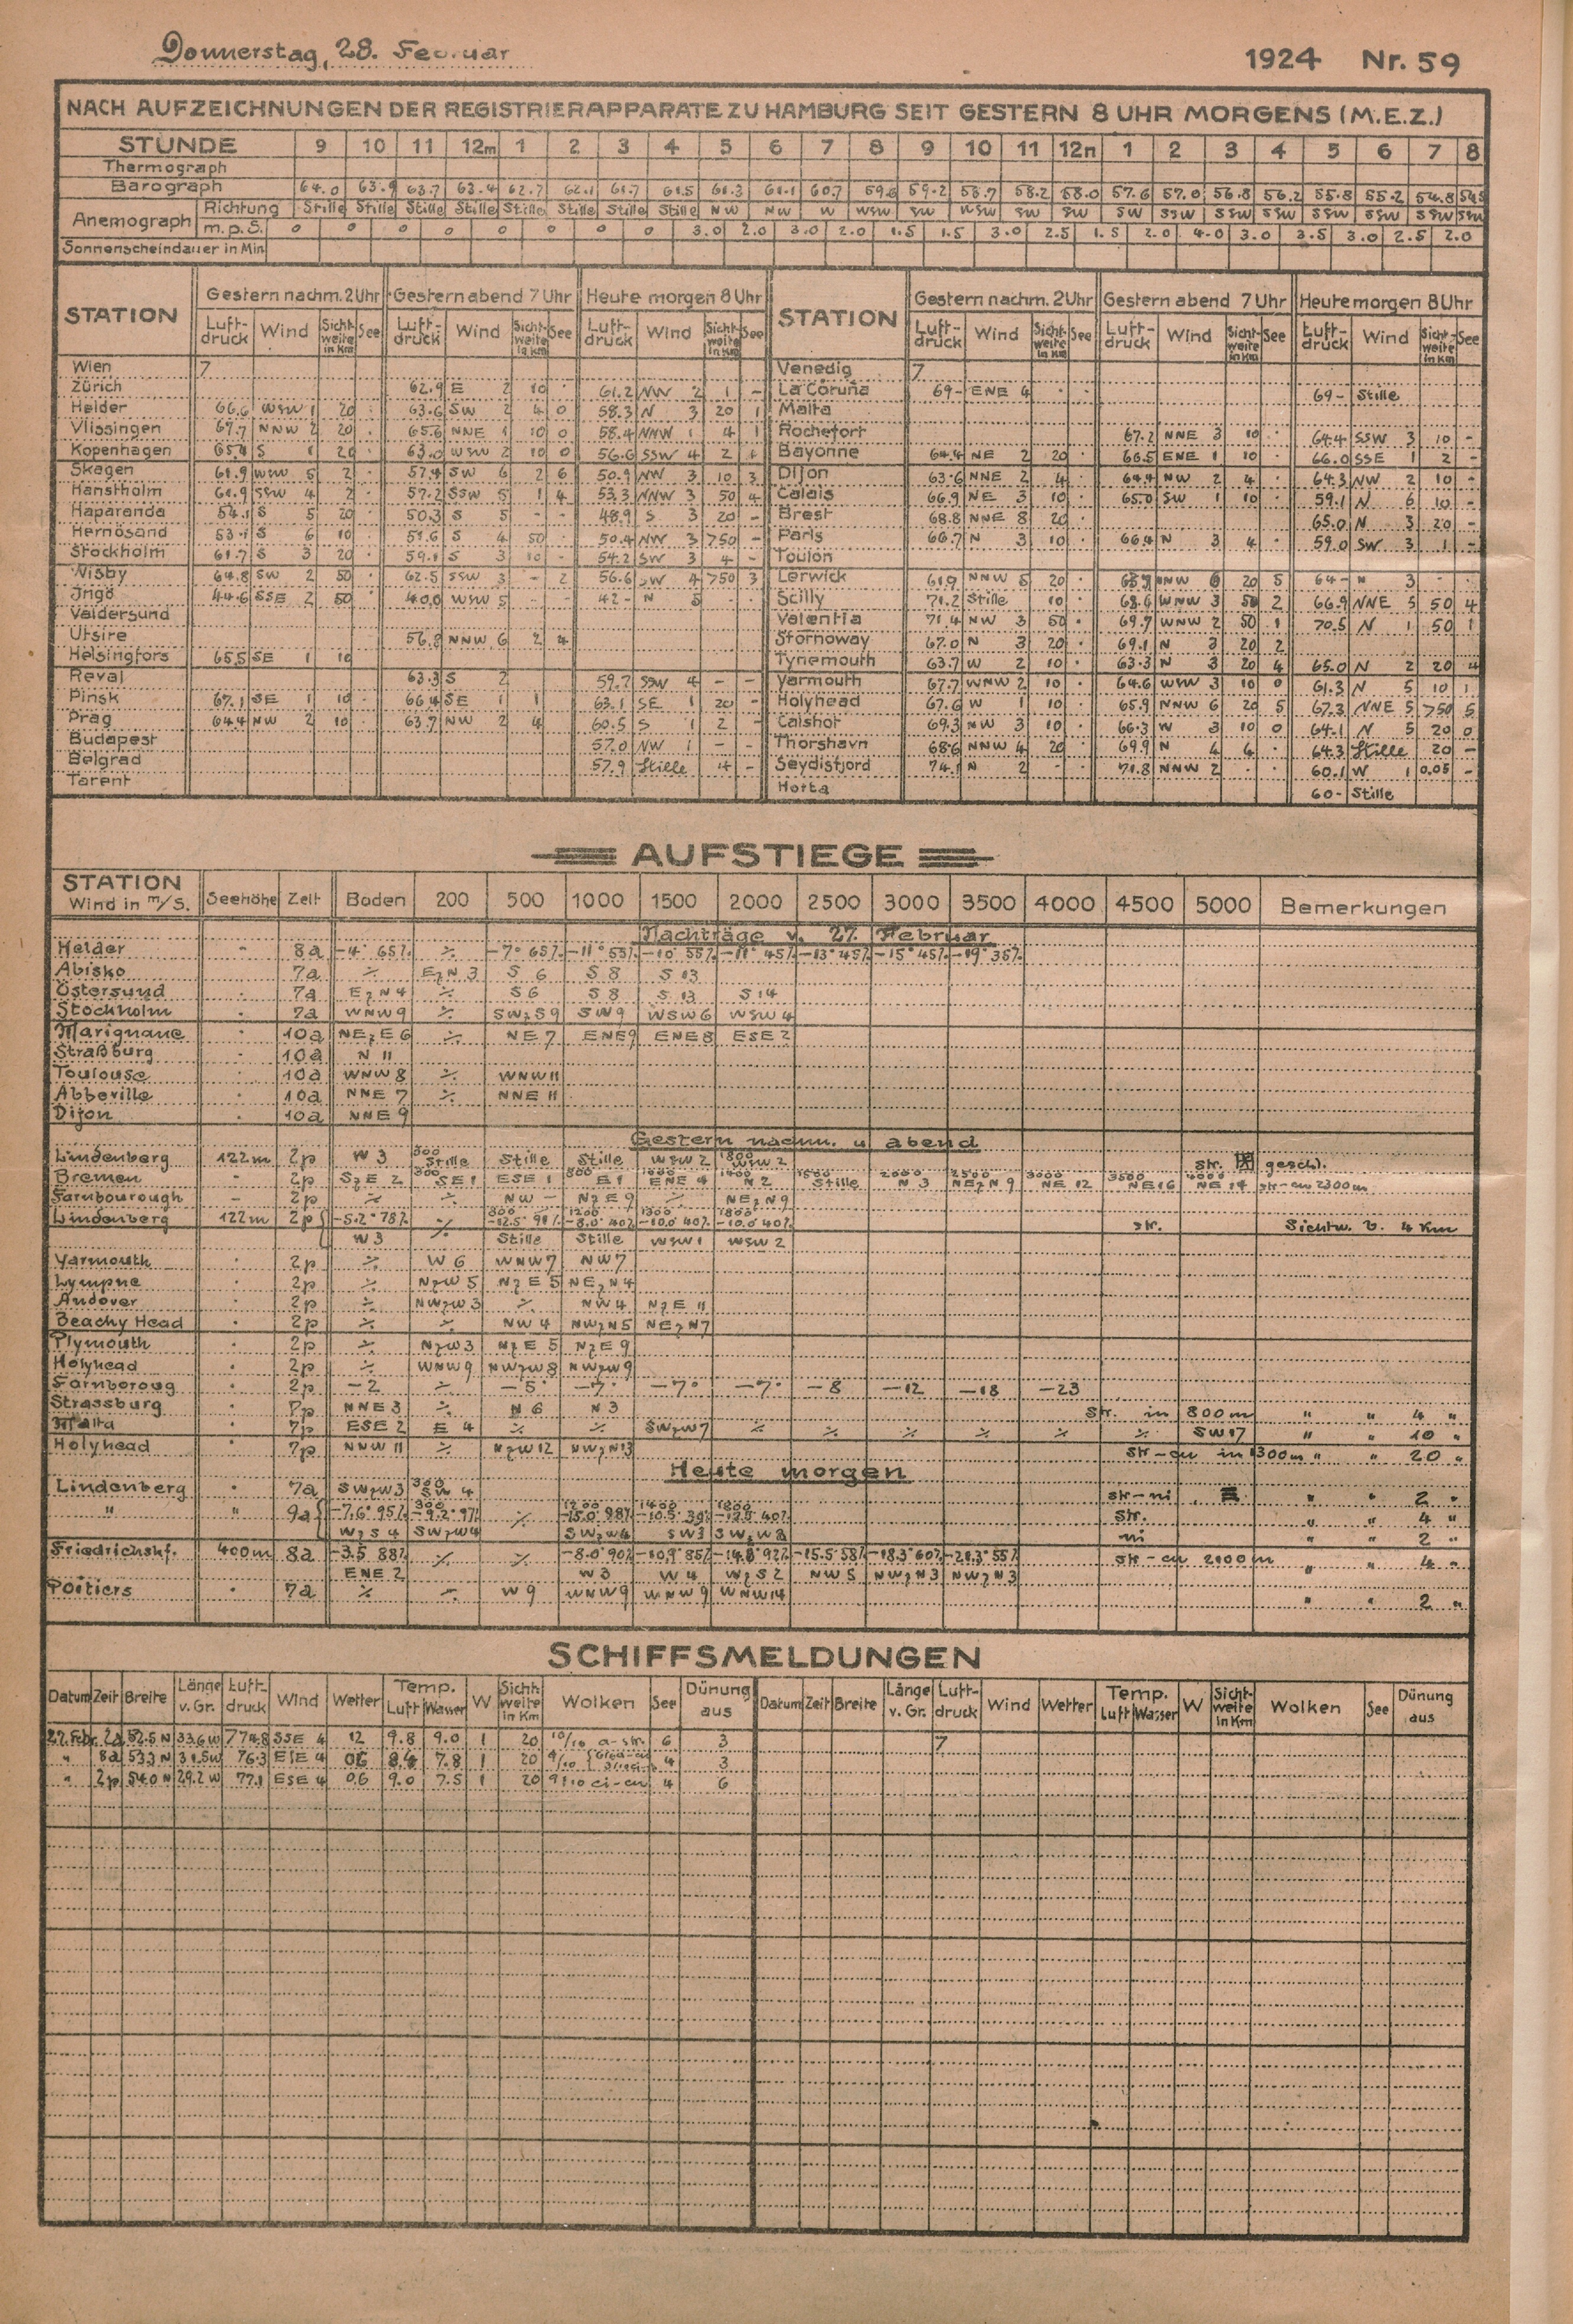 Donnerstag, 28. Februar 1924 Nr. 59
NACH AUFZEICHNUNGEN DER REGISTRIERAPPARATE ZU HAMBURG SEIT GESTERN 8 UHR MORGENS (M.E.Z.)
STUNDE 9 10 11 12m 1 2 3 4 5 6 7 8 9 10 11 12n 1 2 3 4 5 6 7 8
Thermograph
Barograph 64.0 63.9 63.7 63.4 62.7 62.1 61.7 61.5 61.3 61.1 60.7 59.6 59.2 58.7 58.2 58.0 57.6 57.0 56.8 56.2 55.8 55.2 54.8
Anemograph Richtung Stille Stille Stille Stille Stille Stille Stille Stille NW NW W WSW SW WSW SW SW SW SSW SSW SSW SSW SSW SSW SSW
m.p.S. 0 0 0 0 0 0 0 0 3.0 2.0 3.0 2.0 1.5 1.5 3.0 2.5 1.5 2.0 4.0 3.0 3.5 3.0 2.5 2.0
Sonnenscheindauer in Min
STATION Gestern nachm. 2 Uhr Gestern abend 7 Uhr Heute morgen 8 Uhr STATION Gestern nachm. 2 Uhr Gestern abend 7 Uhr Heute morgen 8 Uhr
Luft-druck Wind Sicht-weite in Km See Luft-druck Wind Sicht-weite in Km See Luft-druck Wind Sicht-weite in Km See Luft-druck Wind Sicht-weite in Km See Luft-druck Wind Sicht-weite in Km See Luft-druck Wind Sicht-weite in Km See
Wien 7 Venedig 7
Zürich 62.9 E 2 10 · 61.2 NW 2 1 – La Coruña 69– ENE 4 · · 69– Stille
Helder 66.6 WSW 1 20 · 63.6 SW 2 4 0 58.3 N 3 20 1 Malta
Vlissingen 67.7 NNW 2 20 · 65.6 NNE 1 10 0 58.4 NNW 1 4 1 Rochefort 67.2 NNE 3 10 · 64.4 SSW 3 10 –
Kopenhagen 65.4 S 1 20 · 63.0 WSW 2 10 0 56.6 SSW 4 2 Bayonne 64.4 NE 2 20 · 66.5 ENE 1 10 · 66.0 SSE 1 2 –
Skagen 61.9 WSW 5 2 · 57.4 SW 6 2 6 50.9 NW 3 10 3 Dijon 63.6 NNE 2 4 · 64.4 NW 2 4 · 64.3 NW 2 10 –
Hanstholm 61.9 SSW 4 2 · 57.2 SSW 5 1 4 53.3 NNW 3 50 4 Calais 66.9 NE 3 10 · 65.0 SW 1 10 · 59.1 N 6 10 –
Haparanda 54.1 S 5 20 · 50.3 S 5 – – 48.9 S 3 20 – Brest 68.8 NNE 8 20 · 65.0 N 3 20 –
Hernösand 53.1 S 6 10 · 51.6 S 4 50 · 50.4 NW 3 750 – Paris 66.7 N 3 10 · 66.4 N 3 4 · 59.0 SW 3 1 –
Stockholm 61.7 S 3 20 · 59.1 S 3 10 – 54.2 SW 3 4 – Toulon
Wisby 64.8 SW 2 50 · 62.5 SSW 3 – 2 56.6 SW 4 750 3 Lerwick 61.9 NNW 5 20 · NNW 6 20 5 64– N 3 · ·
Ingö 44.6 SSE 2 50 · 40.0 WSW 5 · · 42– N 5 · · Scilly 71.2 Stille 10 · 68.6 WNW 3 50 2 66.9 NNE 5 50 4
Valdersund Valentia 71.4 NW 3 50 · 69.7 WNW 2 50 1 70.5 N 1 50 1
Utsire 56.8 NNW 6 2 4 Stornoway 67.0 N 3 20 · 69.1 N 3 20 2
Helsingfors 65.5 SE 1 10 Tynemouth 63.7 W 2 10 · 63.3 N 3 20 4 65.0 N 2 20 4
Reval 63.3 S 2 59.7 SSW 4 – – Yarmouth 67.7 WNW 2 10 · 64.6 WSW 3 10 0 61.3 N 5 10 1
Pinsk 67.1 SE 1 10 · 66.4 SE 1 1 63.1 SE 1 20 – Holyhead 67.6 W 1 10 · 65.9 NNW 6 20 5 67.3 NNE 5 750 5
Prag 64.4 NW 2 10 · 63.7 NW 2 4 60.5 S 1 2 – Calshot 69.3 NW 3 10 · 66.3 W 3 10 0 64.1 N 5 20 0
Budapest 57.0 NW 1 – – Thorshavn 68.6 NNW 4 20 · 69.9 N 4 4 · 64.3 Stille 20 –
Belgrad 57.9 Stille 4 – Seydisfjord 74.1 N 2 · · 71.8 NNW 2 · · 60.1 W 1 0.05 –
Tarent Horta 60– Stille
AUFSTIEGE
STATION Wind in m/s. Seehöhe Zeit Boden 200 500 1000 1500 2000 2500 3000 3500 4000 4500 5000 Bemerkungen
Nachträge v. 27. Februar
Helder – 8a –4° 65% ·/. –7° 65% –11° 55% –10° 55% –11° 45% –13° 45% –15° 45% –19° 35%
Abisko · 7a ·/. EzN 3 S 6 S 8 S 13
Östersund · 7a EzN 4 ·/. S 6 S 8 S 13 S 14
Stockholm · 7a WNW 9 ·/. SWzS 9 SW 9 WSW 6 WSW 4
Marignane · 10a NEzE 6 ·/. NE 7 ENE 9 ENE 8 ESE 2
Straßburg · 10a N 11
Toulouse · 10a WNW 8 ·/. WNW 11
Abbeville · 10a NNE 7 ·/. NNE 11
Dijon · 10a NNE 9
Gestern nachm. u. abend
Lindenberg 122m 2p W 3 300 Stille Stille Stille WSW 2 1800 WSW 2 str. geschl.
Bremen – 2p SzE 2 300 SE 1 ESE 1 800 E 1 1000 ENE 4 1400 N 2 1500 Stille 2000 N 3 2500 NEzN 9 3000 NE 12 3500 NE 16 4000 NE 14 str-cu 2300m
Farnbourough – 2p ·/. ·/. NW – NzE 9 ·/. NEzN 9
Lindenberg 122m 2p –5.2° 78% ·/. 800 1200 –8.0° 40% 1500 –10.0° 40% 1800 –10.0° 40% str. Sichtw. b. 4 Km
W 3 Stille Stille WSW 1 WSW 2
Yarmouth · 2p ·/. W 6 WNW 7 NW 7
Lympne · 2p ·/. NzW 5 NzE 5 NEzN 4
Andover · 2p ·/. NWzW 3 ·/. NW 4 NzE 11
Beachy Head · 2p ·/. ·/. NW 4 NWzN 5 NEzN 7
Plymouth · 2p ·/. NzW 3 NzE 5 NzE 9
Holyhead · 2p ·/. WNW 9 NWzW 8 NWzW 9
Farnboroug · 2p –2 ·/. –5° –7° –7° –7° –8 –12 –18 –23
Strassburg · 7p NNE 3 ·/. N 6 N 3 Str. in 800m " " 4 "
Malta · 7p ESE 2 E 4 ·/. ·/. SWzW 7 ·/. ·/. ·/. ·/. ·/. ·/. SW 17 " " 10 "
Holyhead · 7p NNW 11 ·/. NzW 12 NWzN 13 str-cu in 1300m " " 20 "
Heute morgen
Lindenberg 7a SWzW 3 300 SW 4 str-ni " " 2 "
" " 9a –7.6° 95% 300 –9.2° 97% ·/. 1200 –15.0° 98% 1400 1800 40% str. " " 4 "
WzS 4 SWzW 4 SWzW 4 SW 3 SWzW 2 ni " " 2 "
Friedrichshf. 400m 8a –3.5 88% ·/. ·/. –8.0° 90% –10.9° 85% –14.8° 92% –15.5° 58% –18.3° 60% –21.3° 55% str-cu 2100m " " 4 "
ENE 2 W 3 W 4 WzS 2 NW 5 NWzN 3 NWzN 3
Poitiers · 7a ·/. ·/. W 9 WNW 9 WNW 9 WNW 14 " " 2 "
SCHIFFSMELDUNGEN
Datum Zeit Breite Länge v. Gr. Luft-druck Wind Wetter Temp. Luft Wasser W Sicht-weite in Km Wolken See Dünung aus Datum Zeit Breite Länge v. Gr. Luft-druck Wind Wetter Temp. Luft Wasser W Sicht-weite in Km Wolken See Dünung aus
27. Febr. 2a 52.5 N 33.6 W 774.8 SSE 4 12 9.8 9.0 1 20 10/10 a-str. 6 3 7
" 8a 53.3 N 31.5 W 76.3 ESE 4 06 8.4 7.8 1 20 4/10 4 3
" 2p 54.0 N 29.2 W 77.1 ESE 4 06 9.0 7.5 1 20 9/10 ci-cu 4 6